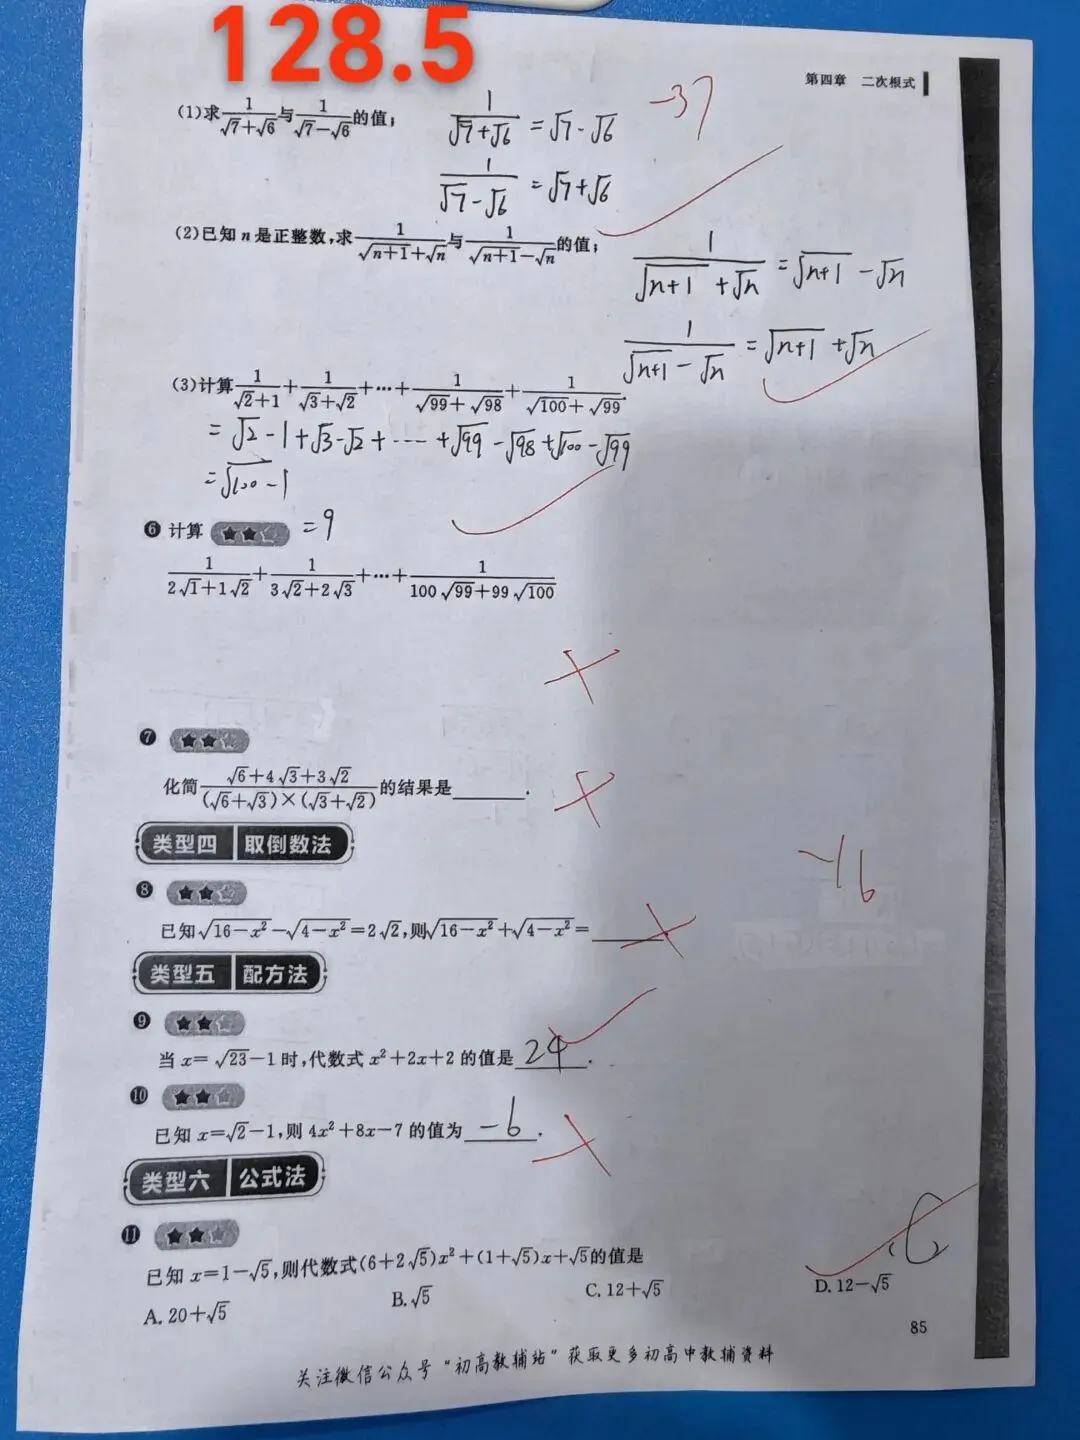 128.5
第四章 二次根式
(1)求1/(√7+√6)与1/(√7-√6)的值;
1/(√7+√6) = √7-√6
-37
1/(√7-√6) = √7+√6
(2)已知n是正整数,求1/(√(n+1)+√n)与1/(√(n+1)-√n)的值;
1/(√(n+1)+√n) = √(n+1)-√n
1/(√(n+1)-√n) = √(n+1)+√n
(3)计算1/(√2+1)+1/(√3+√2)+…+1/(√99+√98)+1/(√100+√99).
=√2-1+√3-√2+……+√99-√98+√100-√99
=√100-1
=9
❻ 计算 ★★☆
1/(2√1+1√2)+1/(3√2+2√3)+…+1/(100√99+99√100)
❼ ★★☆
化简(√6+4√3+3√2)/((√6+√3)×(√3+√2))的结果是______.
类型四 取倒数法
-16
❽ ★★☆
已知√(16-x²)-√(4-x²)=2√2,则√(16-x²)+√(4-x²)=______
类型五 配方法
❾ ★★☆
当x=√23-1时,代数式x²+2x+2的值是 24 .
❿ ★★☆
已知x=√2-1,则4x²+8x-7的值为 -6 .
类型六 公式法
⓫ ★★☆
已知x=1-√5,则代数式(6+2√5)x²+(1+√5)x+√5的值是
(C)
A. 20+√5 B. √5 C. 12+√5 D. 12-√5
85
关注微信公众号“初高教辅站”获取更多初高中教辅资料